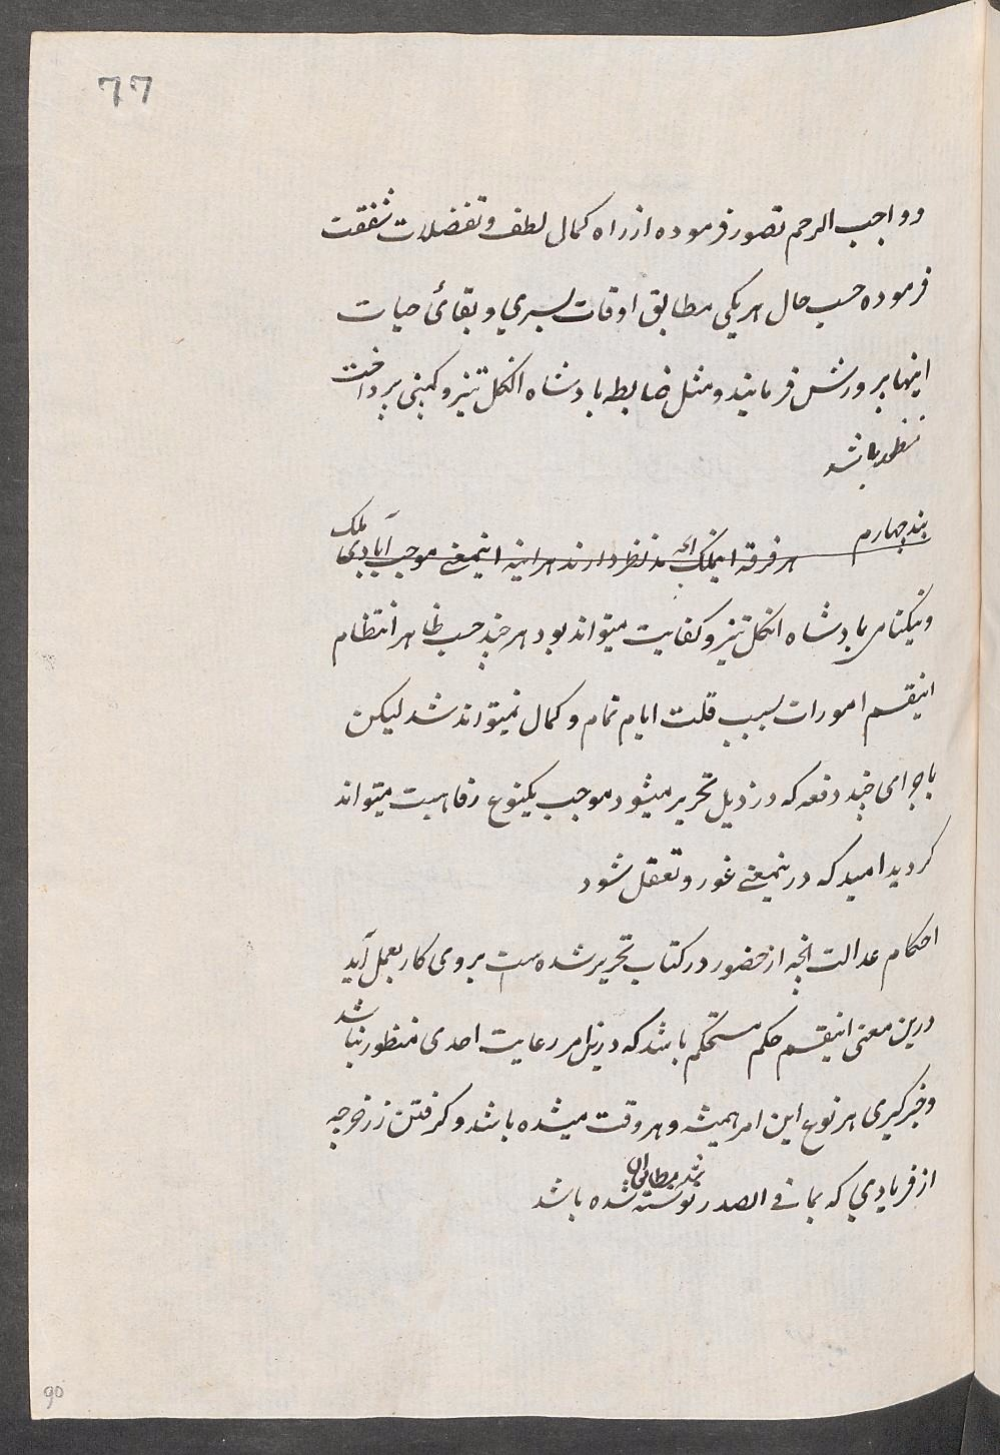 ٦٦
و واجب الرحم تصور فرموده از راه کمال لطف و تفضلات شفقت
فرموده حسب حال هریکی مطابق اوقات بسری و بقائ حیات
اینها پرورش فرمایند و مثل ضابطه بادشاه انکلتیز و کمپنی پرداخت
منظور باشد
بند چهارم هر فرقه اینملک انچه مد نظر دارند هراینه اینمعنے موجب آبادی ملک
و نیکنامی بادشاه انکلتیز و کفایت میتواند بود هر چند حسب ظاهر انتظام
اینقسم امورات بسبب قلت ایام تمام و کمال نمیتواند شد لیکن
باجرای چند دفعه که در ذیل تحریر میشود موجب یکنوع رفاهیت میتواند
کردید امید که درینمعنے غور و تعقل شود
احکام عدالت انچه از حضور در کتاب تحریر شده است بروی کار بعمل آید
درین معنی اینقسم حکم مستحکم باشد که درینامر رعایت احدی منظور نباشد
و خبرکیری هر نوع این امر همیشه و هر وقت میشده باشد و کرفتن زر خرچه
از فریادی که بما فے الصدر نوشته شد مطابق ان شده باشد
90